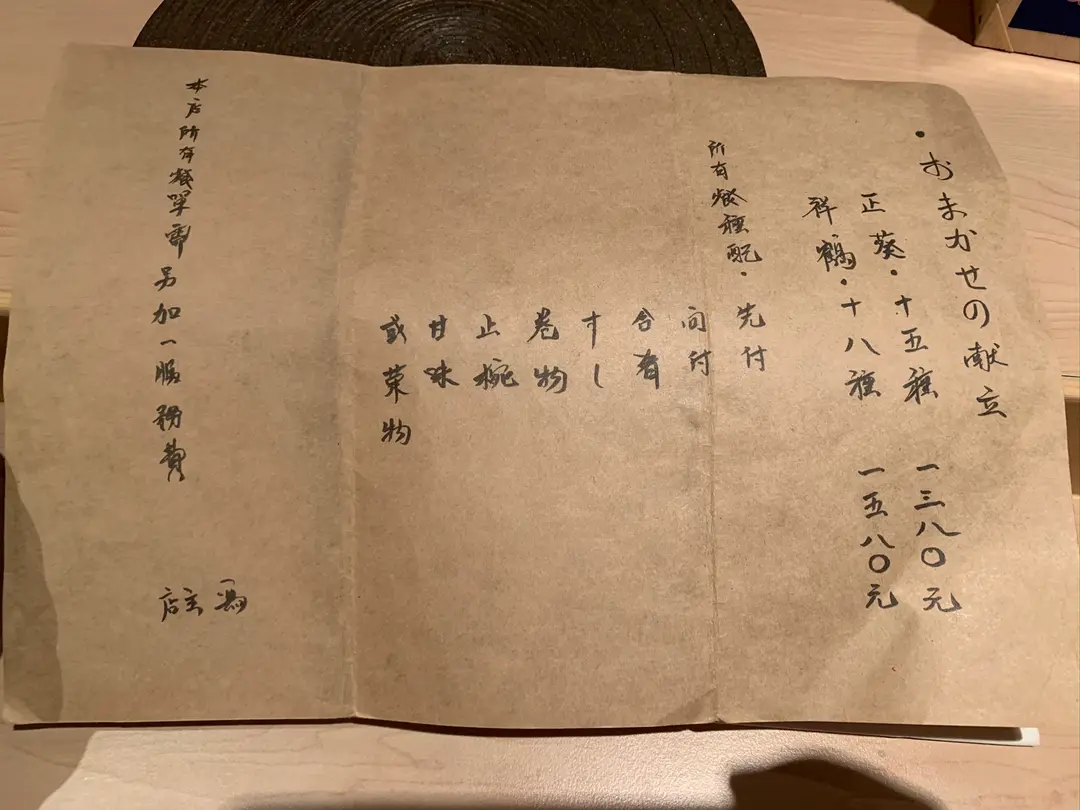 ・おまかせの献立
正葵・十五種 一三八〇元
祥鶴・十八種 一五八〇元
所有餐種配・先付
向付
合肴
すし
巻物
止椀
甘味
或菓物
本店所有餐單需另加一服務費
店主